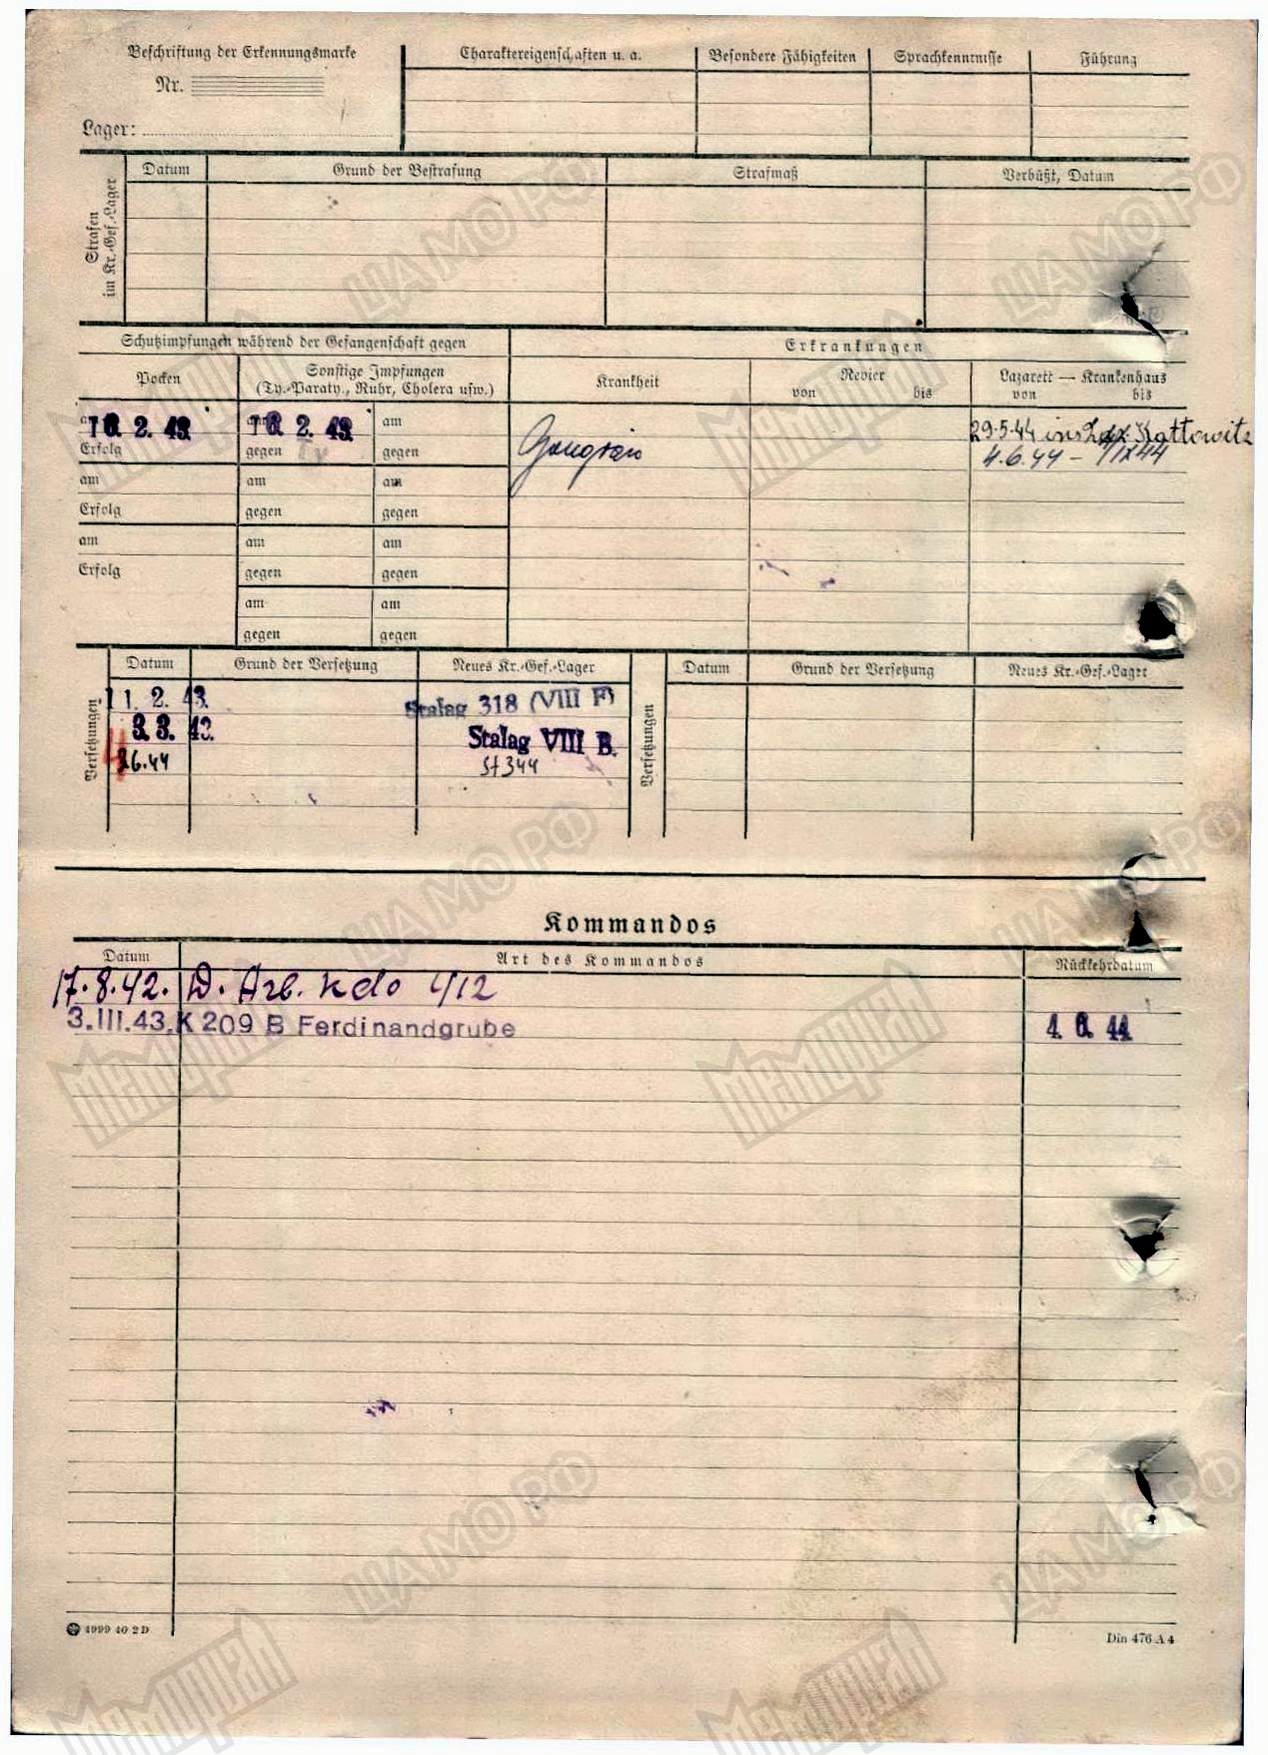 Beschriftung der Erkennungsmarke
Nr.
Lager:
Charaktereigenschaften u. a.
Besondere Fähigkeiten
Sprachkenntnisse
Führung
Strafen
im Kr.-Gef.-Lager
Datum
Grund der Bestrafung
Strafmaß
Verbüßt, Datum
Schutzimpfungen während der Gefangenschaft gegen
Erkrankungen
Pocken
Sonstige Impfungen
(Ty.-Paraty., Ruhr, Cholera usw.)
Krankheit
Revier
von bis
Lazarett — Krankenhaus
von bis
2. 43 2. 43 am
29.5.44 ins Laz. Kattowitz
Erfolg gegen Ty gegen
4.6.44 –
am am am
Erfolg gegen gegen
am am am
Erfolg gegen gegen
am am
gegen gegen
Versetzungen
Datum
Grund der Versetzung
Neues Kr.-Gef.-Lager
11. 2. 43. Stalag 318 (VIII F)
3. 3. 43. Stalag VIII B.
6.44 St 344
Versetzungen
Datum
Grund der Versetzung
Neues Kr.-Gef.-Lager
Kommandos
Datum
Art des Kommandos
Rückkehrdatum
17.8.42. D. Arb. Kdo
3.III.43. K 209 B Ferdinandgrube 4. 6. 44
4999 40 2 D
Din 476 A 4
ЦАМО РФ
Мемориал